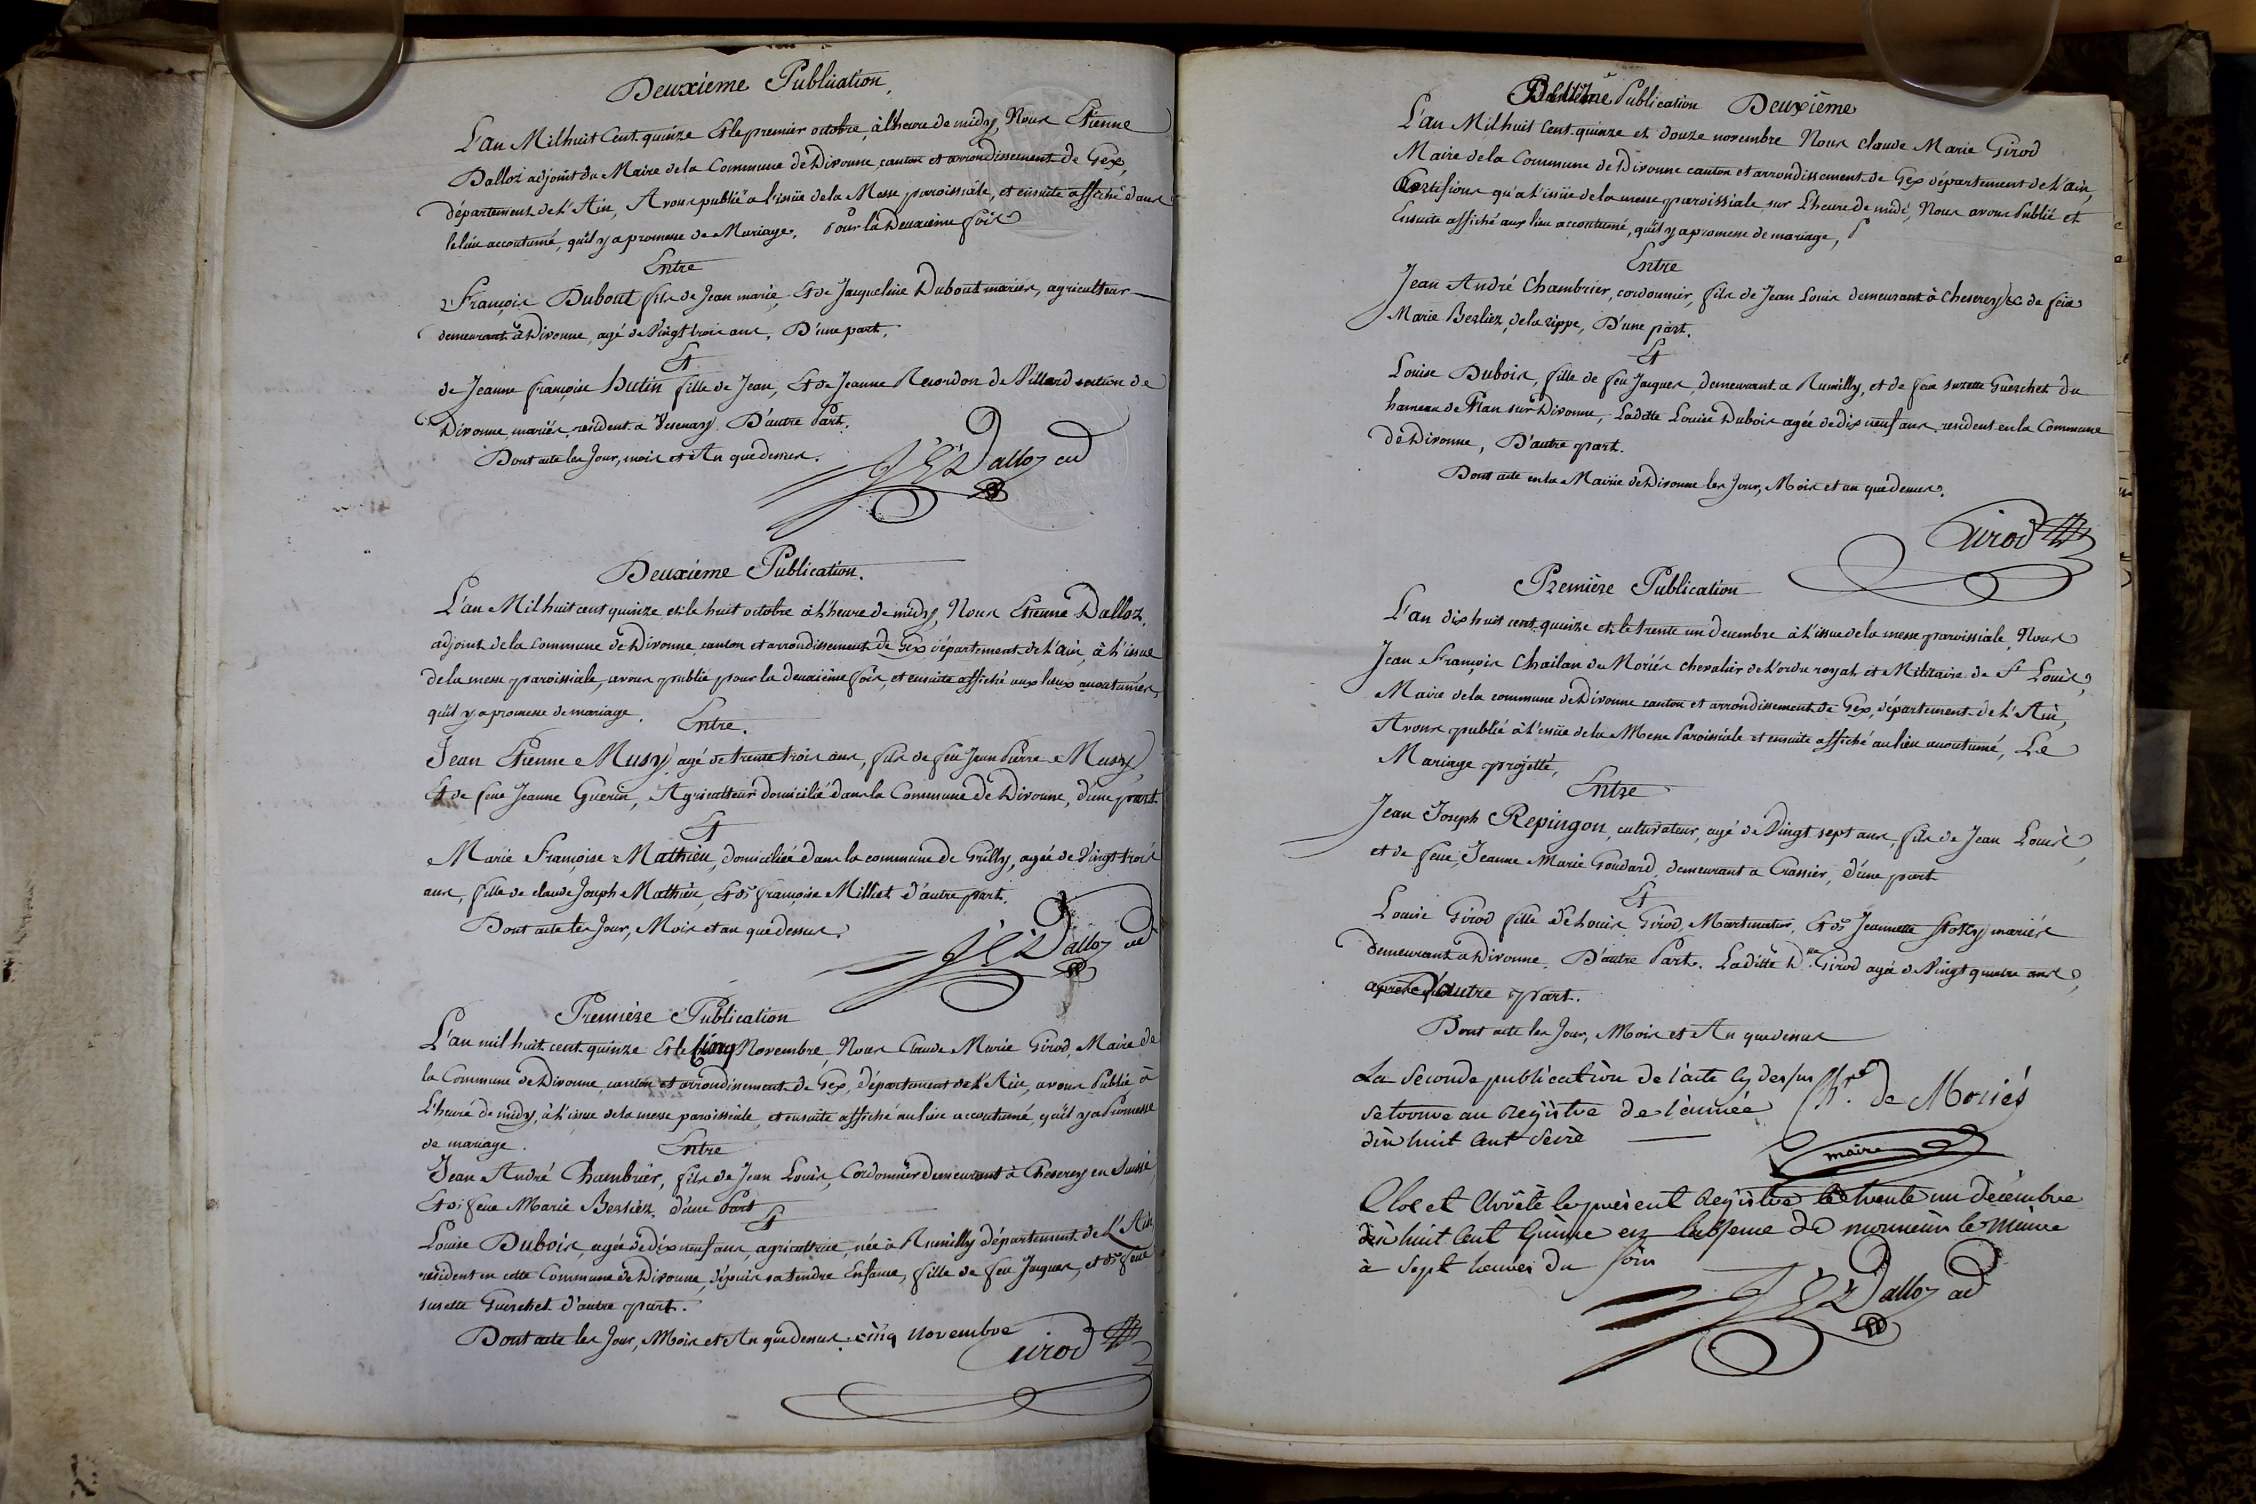 Deuxième Publication.
L'an Mil huit Cent quinze Et le premier octobre, à l'heure de midy, Nous Etienne
Dalloz adjoint du Maire de la Commune de Divonne, canton et arrondissement de Gex,
département de l'Ain, Avons publié a l'issüe de la Messe paroissiale, et ensuite affiché dans
le lieu accoutumé, qu'il y a promesse de Mariage, Pour la Deuxième fois
Entre
François Dubout fils de Jean marie, Et de Jacqueline Dubout mariés, agriculteur
demeurant à Divonne, agé de Vingt trois ans, D'une part,
Et
de Jeanne françoise hutin fille de Jean, Et de Jeanne Recordon de Villard section de
Divonne, mariés, resident a Vesenay. D'autre Part.
Dont acte les Jour, mois et An que dessus.
J E Dalloz ad
Deuxième Publication.
L'an Mil huit cent quinze et le huit octobre à l'heure de midy, Nous Etienne Dalloz,
adjoint de la Commune de Divonne, canton et arrondissement de Gex département de l'ain, à l'issue
de la messe paroissiale, avons publié pour la deuxième fois, et ensuite affiché aux lieux accoutumés,
qu'il y a promesse de mariage. Entre.
Jean Etienne Musy, agé de trente trois ans, fils de feu Jean Pierre Musy,
Et de feue Jeanne Guerin, Agriculteur domicilié dans la Commune de Divonne, d'une part
Et
Marie Françoise Mathieu, domiciliée dans la commune de Grilly, agée de Vingt trois
ans, fille de claude Joseph Mathieu, Et de françoise Milliet d'autre part.
Dont acte les Jour, Mois et an que dessus.
J E Dalloz ad
Première Publication
L'an mil huit cent quinze Et le Cinq Novembre, Nous Claude Marie Girod, Maire de
la Commune de Divonne, canton et arrondissement de Gex, Département de l'Ain, avons Publié à
L'heure de midy, à l'issue de la messe paroissiale, et ensuite affiché au lieu accoutumé, qu'il y a Promesse
de mariage. Entre
Jean André Chambrier, fils de Jean Louis, Cordonnier demeurant à Cheserey en Suisse,
Et de feue Marie Berliez, d'une Part
Et
Louise Dubois, agée de dix neuf ans, agricultrice, née à Rumilly département de L'Ain,
resident en cette Commune de Divonne, depuis sa tendre Enfance, fille de feu Jaques, et de feue
susette Guerchet d'autre part.
Dont acte les Jour, Mois et An que dessus. cinq Novembre
Girod
Publication Deuxième
L'an Mil huit Cent quinze et douze novembre Nous claude Marie Girod
Maire de la Commune de Divonne canton et arrondissement de Gex département de l'ain,
Certifions qu'a l'issüe de la messe paroissiale, sur L'heure de midi, Nous avons Publié et
Ensuite affiché aux lieu accoutumé, qu'il y a promesse de mariage,
Entre
Jean André Chambrier, cordonnier, fils de Jean Louis demeurant à Cheserey, & de feüe
Marie Berliez, de la rippe, D'une part.
Et
Louise Dubois, fille de feu Jaques, demeurant a Rumilly, et de feue suzette Guerchet du
hameau de Plan sur Divonne, Laditte Louise Dubois agée de dix neuf ans, resident en la Commune
de Divonne, D'autre part.
Dont acte en la Mairie de Divonne les Jour, Mois et an que dessus.
Girod
Première Publication
L'an dix huit cent quinze et le trente un decembre à l'issue de la messe paroissiale, Nous
Jean François Chailan de Moriés chevalier de l'ordre royal et Militaire de St Louis,
Maire de la commune de Divonne canton et arrondissement de Gex, département de l'Ain,
Avons publié à l'issüe de la Messe Paroissiale et ensuite affiché au lieu accoutumé, Le
Mariage projetté,
Entre
Jean Joseph Repingon, cultivateur, agé de Vingt sept ans, fils de Jean Louis,
et de feue, Jeanne Marie Goudard, demeurant a Crassier, d'une part
Et
Louise Girod fille de Louis Girod, Martinateur, Et de Jeannette mariés
demeurant a Divonne. D'autre Part. Laditte Dlle Girod agée de Vingt quatre ans,
D'autre part.
Dont acte les Jour, Mois et An que dessus
La Seconde publication de l'acte cy dessus
se trouve au registre de l'année
dix huit Cent Seize
Chr. de Moriés
maire
Clos et Arrêté le présent registre le trente un décembre
dix huit Cent Quinze en l'absence de monsieur le Maire
à Sept heures du soir
J E Dalloz ad